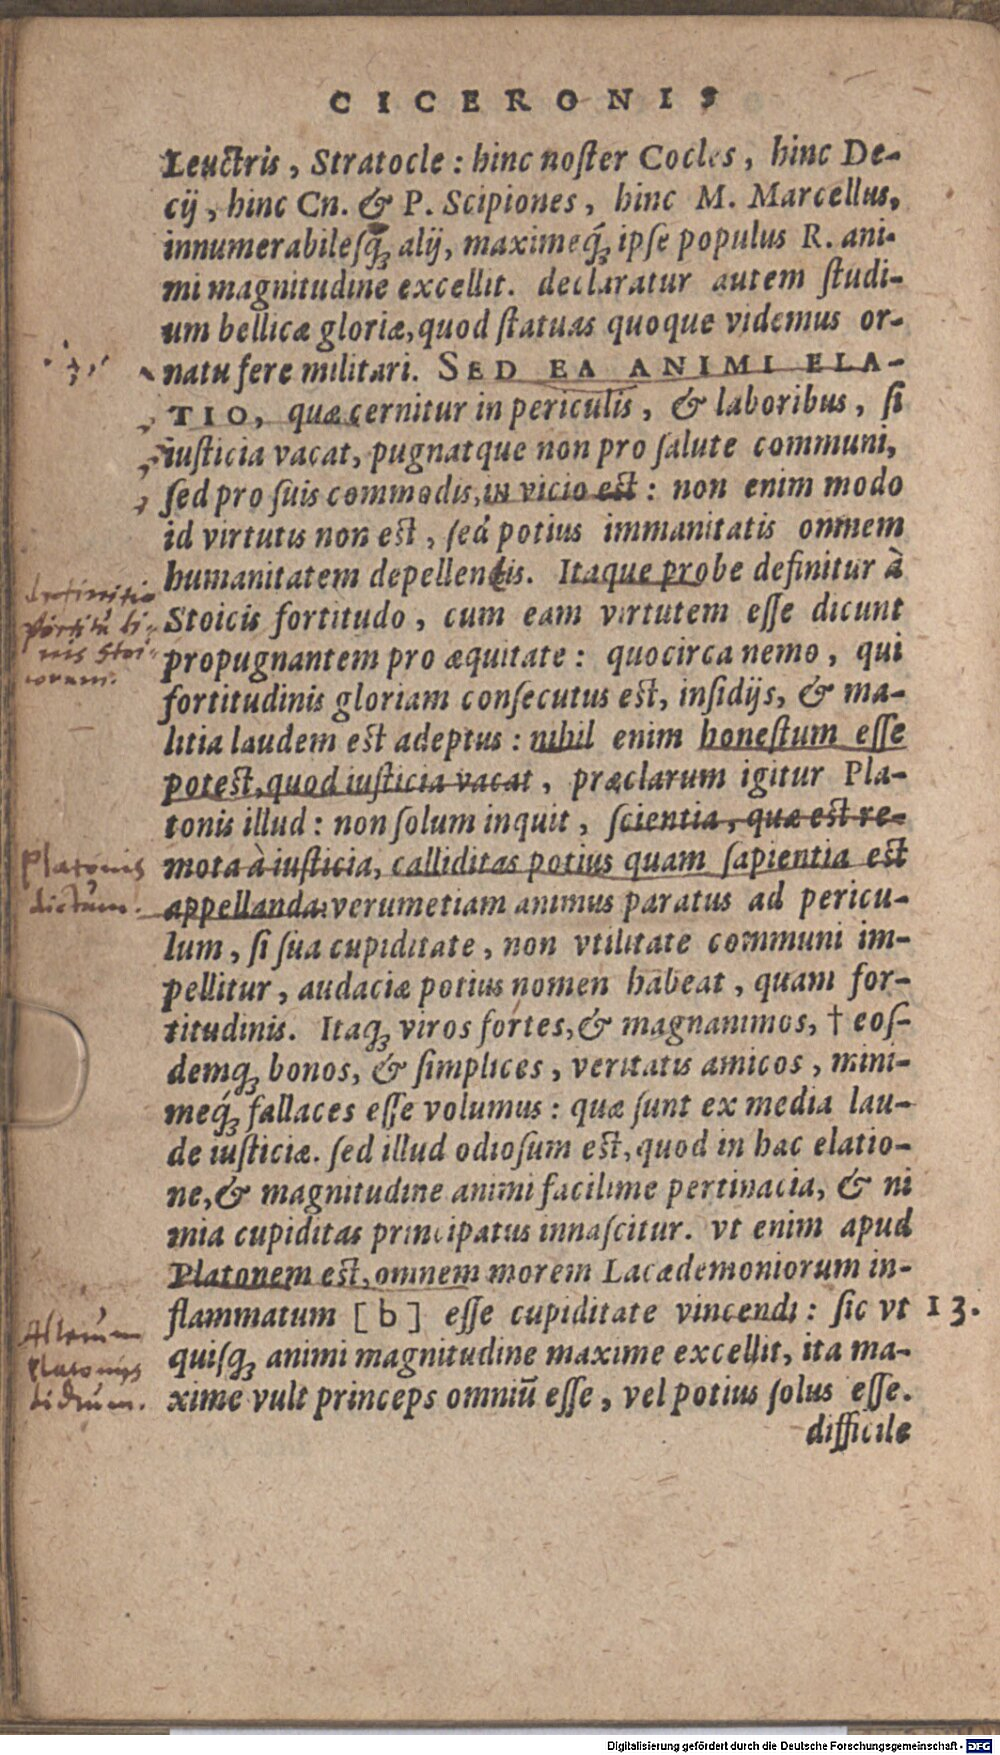 CICERONIS
Leuctris, Stratocle: hinc noſter Cocles, hinc De-
cij, hinc Cn. & P. Scipiones, hinc M. Marcellus,
innumerabileſq́ꝫ alij, maximeq́ꝫ ipſe populus R. ani-
mi magnitudine excellit. declaratur autem ſtudi-
um bellicæ gloriæ, quod ſtatuas quoque videmus or-
natu fere militari. SED EA ANIMI ELA-
TIO, quæ cernitur in periculis, & laboribus, ſi
iuſticia vacat, pugnatque non pro ſalute communi,
ſed pro ſuis commodis, in vicio est: non enim modo
id virtutis non est, ſed potius immanitatis omnem
humanitatem depellentis. Itaque probe definitur à
Stoicis fortitudo, cum eam virtutem eſſe dicunt
propugnantem pro æquitate: quocirca nemo, qui
fortitudinis gloriam conſecutus est, inſidijs, & ma-
litia laudem est adeptus: nihil enim honeſtum eſſe
potest, quod iuſticia vacat, præclarum igitur Pla-
tonis illud: non ſolum inquit, ſcientia, quæ est re-
mota à iuſticia, calliditas potius quam ſapientia est
appellanda: verumetiam animus paratus ad pericu-
lum, ſi ſua cupiditate, non vtilitate communi im-
pellitur, audaciæ potius nomen habeat, quam for-
titudinis. Itaqꝫ viros fortes, & magnanimos, † eoſ-
demqꝫ bonos, & ſimplices, veritatis amicos, mini-
meq́ꝫ fallaces eſſe volumus: quæ ſunt ex media lau-
de iuſticiæ. ſed illud odioſum est, quod in hac elatio-
ne, & magnitudine animi facilime pertinacia, & ni
mia cupiditas principatus innaſcitur. vt enim apud
Platonem est, omnem morem Lacædemoniorum in-
flammatum [b] eſſe cupiditate vincendi: ſic vt 13.
quiſqꝫ animi magnitudine maxime excellit, ita ma-
xime vult princeps omniū eſſe, vel potius ſolus eſſe.
difficile
definitio
fortitudi-
nis Stoi-
corum.
Platonis
dictum.
Alterum
Platonis
dictum.
Digitalisierung gefördert durch die Deutsche Forschungsgemeinschaft - DFG